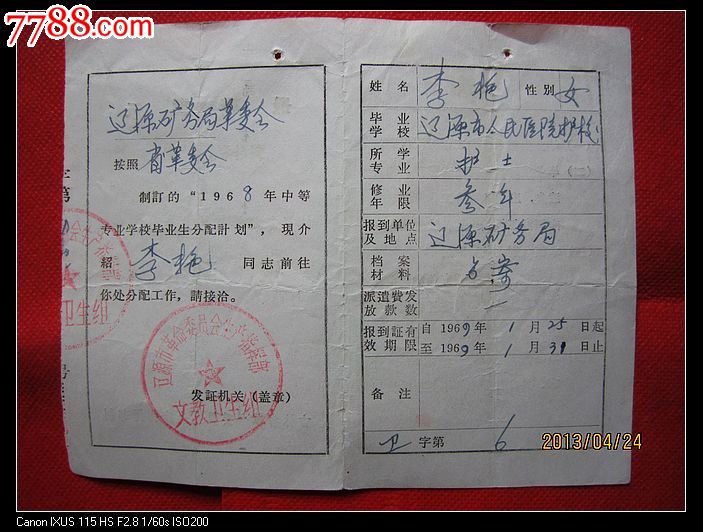 7788.com
辽源矿务局革委会
按照 省革委会
制訂的“1968年中等
专业学校毕业生分配計划”，現介
紹 李艳 同志前往
你处分配工作，請接洽。
辽源市革命委员会生产指挥部
文教卫生组
发証机关（盖章）
卫生组
姓名 李艳 性别 女
毕业学校 辽源市人民医院护校
所学专业 护士
修业年限 叁年
报到单位及地点 辽源矿务局
档案材料
派遣費发放款数 一
报到証有效期限 自1969年1月25日起
至1969年1月31日止
备注
卫 字第 6
2013/04/24
Canon IXUS 115 HS F2.8 1/60s ISO200